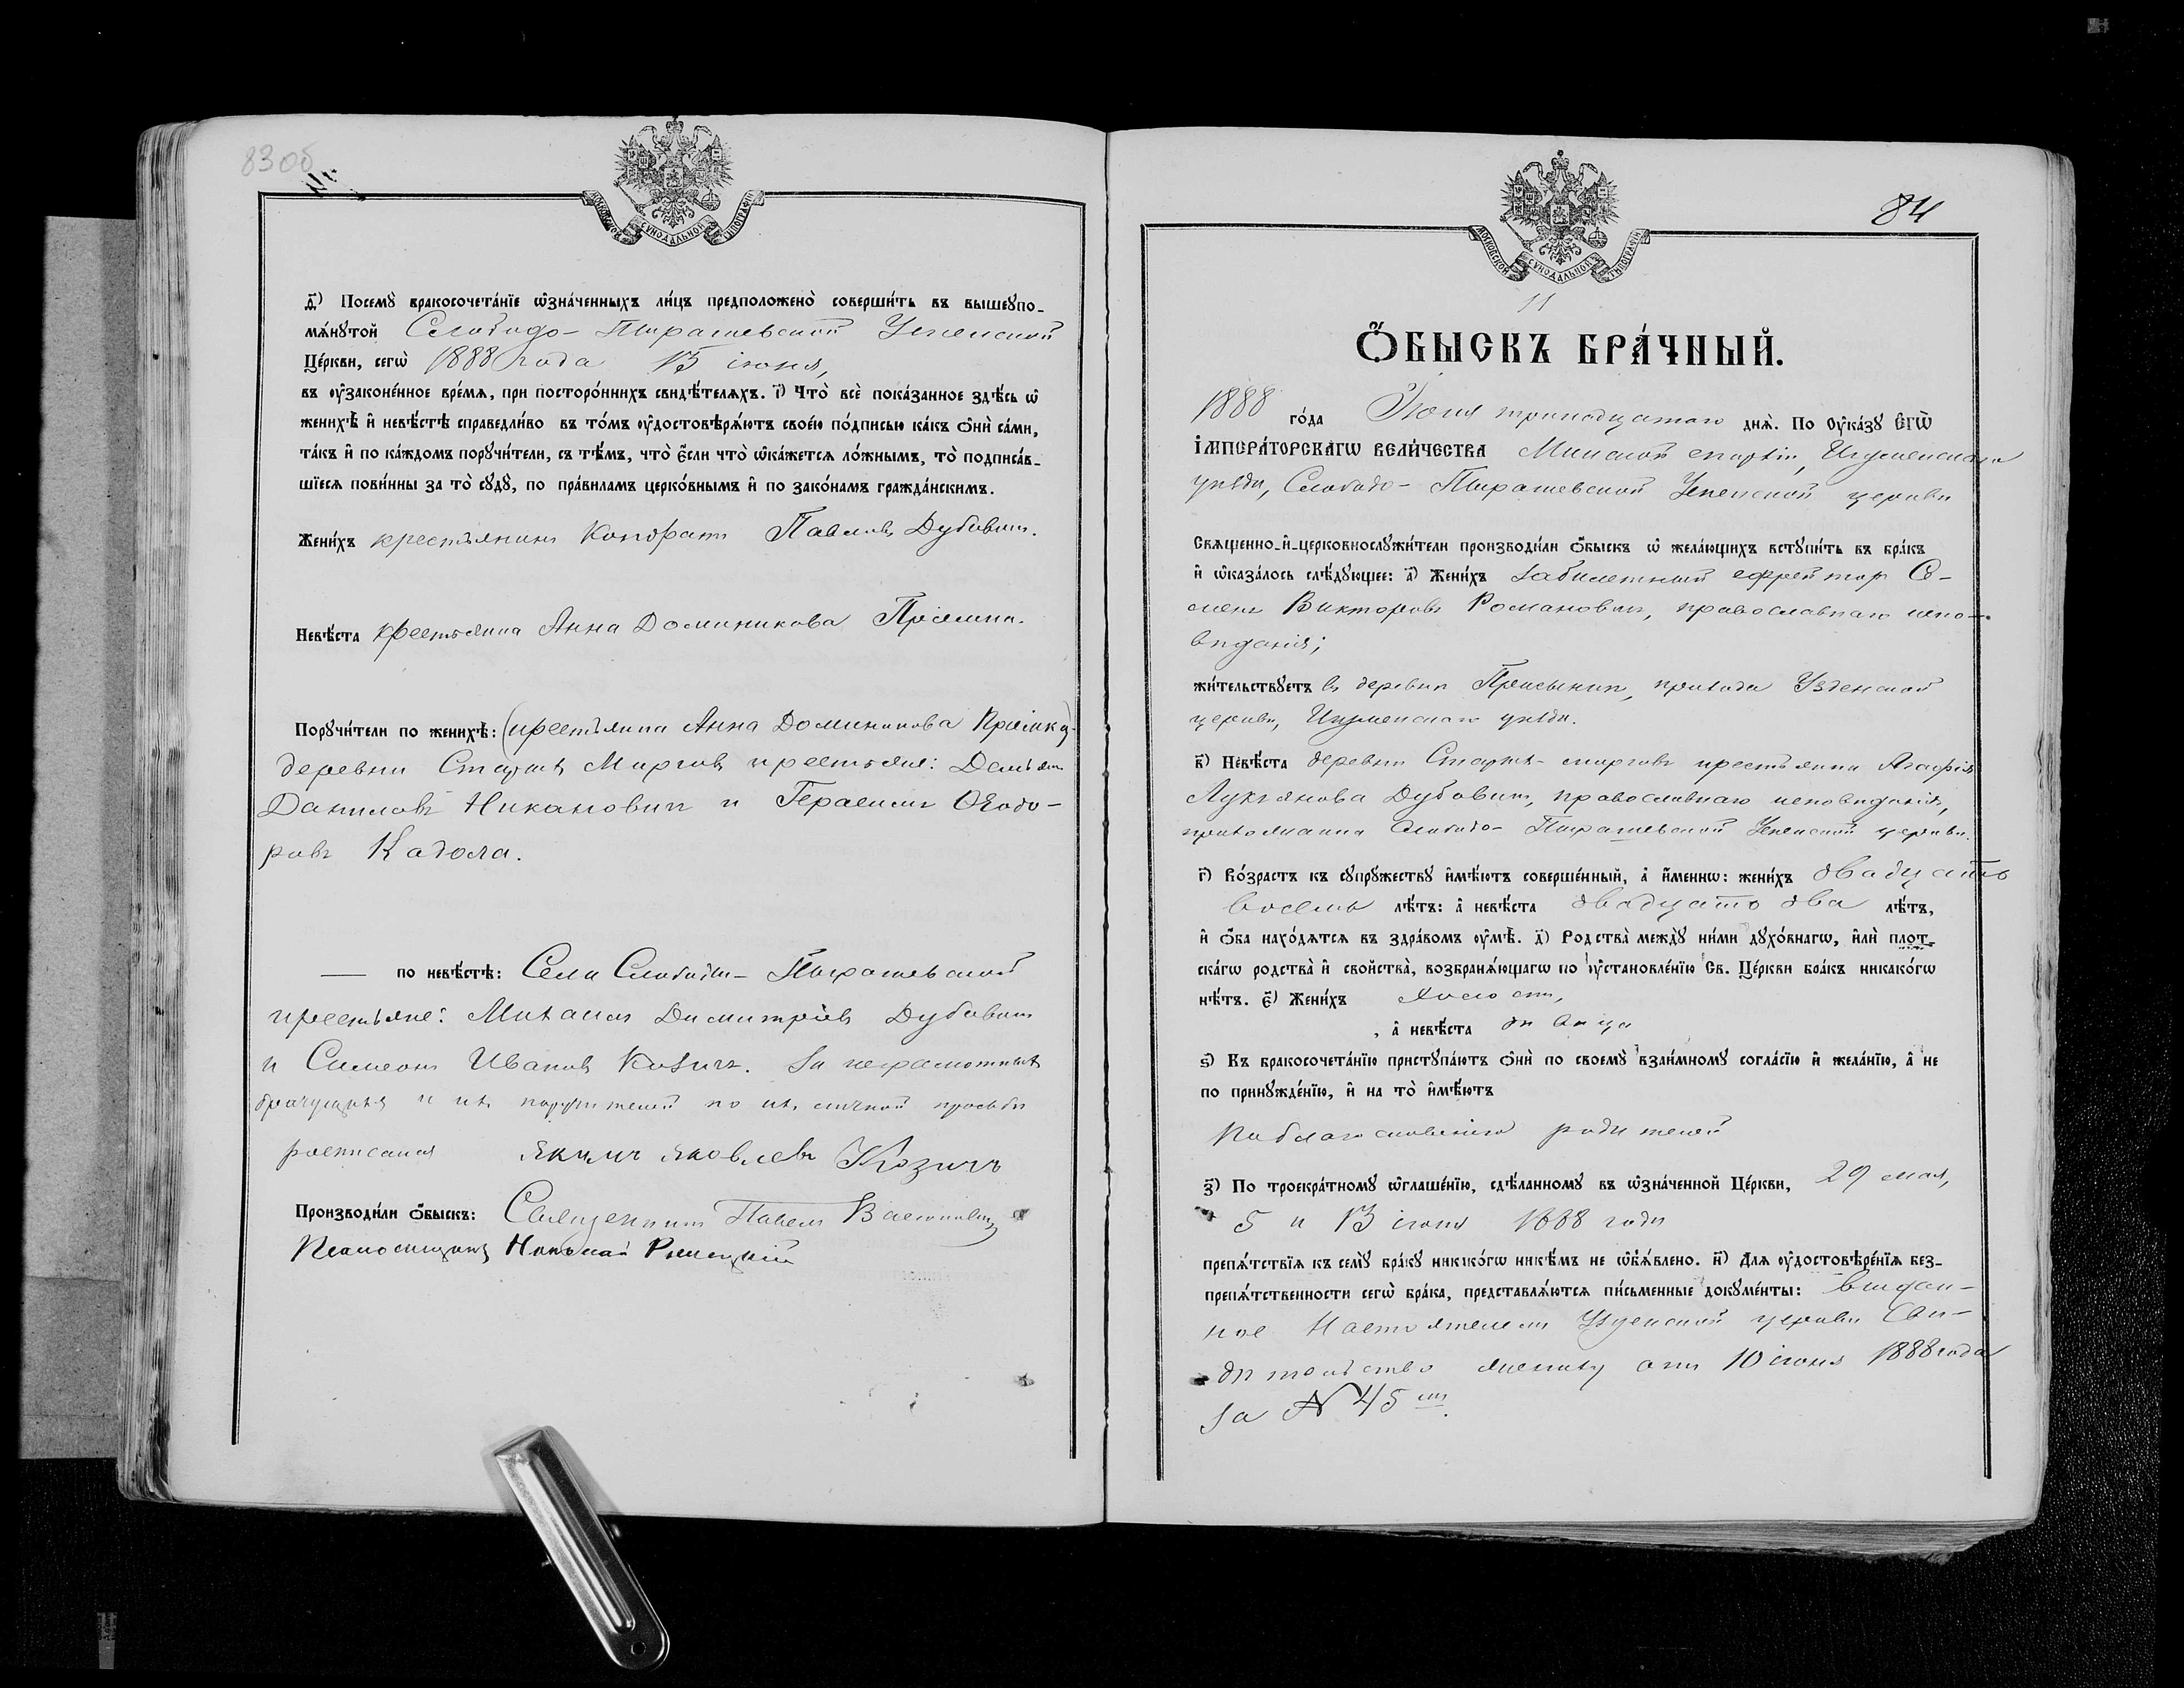 83 об
МОСКОВСКОЙ СѴНОДАЛЬНОЙ ТИПОГРАФІИ
д҃) Посемꙋ̀ бракосочета́нїе ѡ҆зна́ченныхъ ли́цъ предположено̀ соверши́ть въ вышеꙋпо-
мѧ́нꙋтой Слободо-Пырашевской Успенской
Це́ркви, сегѡ̀ 1888 года 13 іюня,
въ ᲂу҆законе́нное вре́мѧ, при посторо́ннихъ свидѣ́телѧхъ. і҃) Что̀ всѐ пока́занное здѣ́сь ѡ҆
женихѣ̀ и҆ невѣ́стѣ справедли́во въ то́мъ ᲂу҆достовѣрѧ́ютъ свое́ю по́дписью ка́къ ѻ҆нѝ са́ми,
та́къ и҆ по ка́ждомъ порꙋчи́тели, съ тѣ́мъ, что̀ є҆́сли что̀ ѡ҆ка́жетсѧ ло́жнымъ, то̀ подписа́в-
шїесѧ пови́нны за то̀ сꙋдꙋ̀, по пра́виламъ церко́внымъ и҆ по зако́намъ гражда́нскимъ.
Жени́хъ крестьянинъ Кондратъ Павловъ Дубовикъ.
Невѣ́ста крестьянка Анна Доминикова
Порꙋчи́тели по женихѣ̀: (крестьянка Анна Доминикова
деревни Старыхъ Морговъ крестьяне: Демьянъ
Даниловъ Никанович и Герасимъ Ѳеодо-
ровъ Кадола.
— по невѣ́стѣ: Села Слободы-Пырашевской
крестьяне: Михаилъ Димитріевъ Дубовикъ
и Симеонъ Ивановъ Козичъ. За неграмотныхъ
брачущихся и ихъ поручителей по ихъ личной просьбѣ
росписался Якимъ Яковлевъ Козичъ
Производи́ли ѻ҆́быскъ: Священникъ Павелъ
Псаломщикъ Николай
84
МОСКОВСКОЙ СѴНОДАЛЬНОЙ ТИПОГРАФІИ
11
Ѻ҆́БЫСКЪ БРА́ЧНЫЙ.
1888 го́да Іюня тринадцатаго днѧ̀. По Оу҆ка́зꙋ Є҆гѡ̀
І҆МПЕРА́ТОРСКАГѠ ВЕЛИ́ЧЕСТВА Минской епархіи, Игуменскаго
уѣзда, Слободо-Пырашевской Успенской церкви
Свѧще́нно-и҆-церковнослꙋжи́тели производи́ли ѻ҆́быскъ ѡ҆ жела́ющихъ встꙋпи́ть въ бра́къ
и҆ ѡ҆каза́лось слѣ́дꙋющее: а҃) Жени́хъ забилетный ефрейтор Се-
менъ Викторовъ Романовичъ, православнаго испо-
вѣданія;
жи́тельствꙋетъ въ деревнѣ Присынкѣ, прихода Узденской
церкви, Игуменскаго уѣзда.
в҃) Невѣ́ста деревни Старыхъ-морговъ крестьянка Агафія
Лукьянова Дубовикъ, православнаго исповѣданія,
прихожанка Слободо-Пырашевской Успенской церкви.
г҃) Во́зрастъ къ сꙋпрꙋжествꙋ и҆мѣ́ютъ соверше́нный, а҆ и҆́меннѡ: жени́хъ двадцать
восемь лѣ́тъ: а҆ невѣ́ста двадцать два лѣ́тъ,
и҆ ѻ҆́ба нахо́дѧтсѧ въ здра́вомъ ᲂу҆мѣ̀. д҃) Родства̀ междꙋ̀ ни́ми дꙋхо́внагѡ, и҆лѝ плот-
ска́гѡ родства̀ и҆ свойства̀, возбранѧ́ющагѡ по ᲂу҆становле́нїю Св. Це́ркви бра́къ никако́гѡ
нѣ́тъ. є҃) Жени́хъ холостъ,
, а҆ невѣ́ста дѣвица
ѕ҃) Къ бракосочета́нїю пристꙋпа́ютъ ѻ҆нѝ по своемꙋ̀ взаи́мномꙋ согла́сїю и҆ жела́нїю, а҆ не
по принꙋжде́нїю, и҆ на то̀ и҆мѣ́ютъ
по благословенію родителей
з҃) По троекра́тномꙋ ѡ҆глаше́нїю, сдѣ́ланномꙋ въ ѡ҆зна́ченной Це́ркви, 29 мая,
5 и 13 іюня 1888 года
препѧ́тствїѧ къ семꙋ̀ бра́кꙋ никако́гѡ никѣ́мъ не ѡ҆б̾ѧ́влено. и҃) Длѧ ᲂу҆достовѣре́нїѧ без-
препѧ́тственности сегѡ̀ бра́ка, представлѧ́ютсѧ пи́сьменные докꙋме́нты: выдан-
ное Настоятелемъ Узденской церкви Сви-
дѣтельство жениху отъ 10 іюня 1888 года
за № 45 мъ.